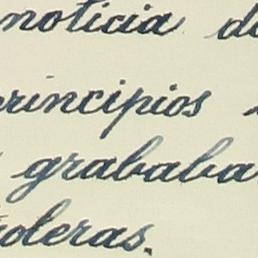 noticia d
principios
grababa
oleras.